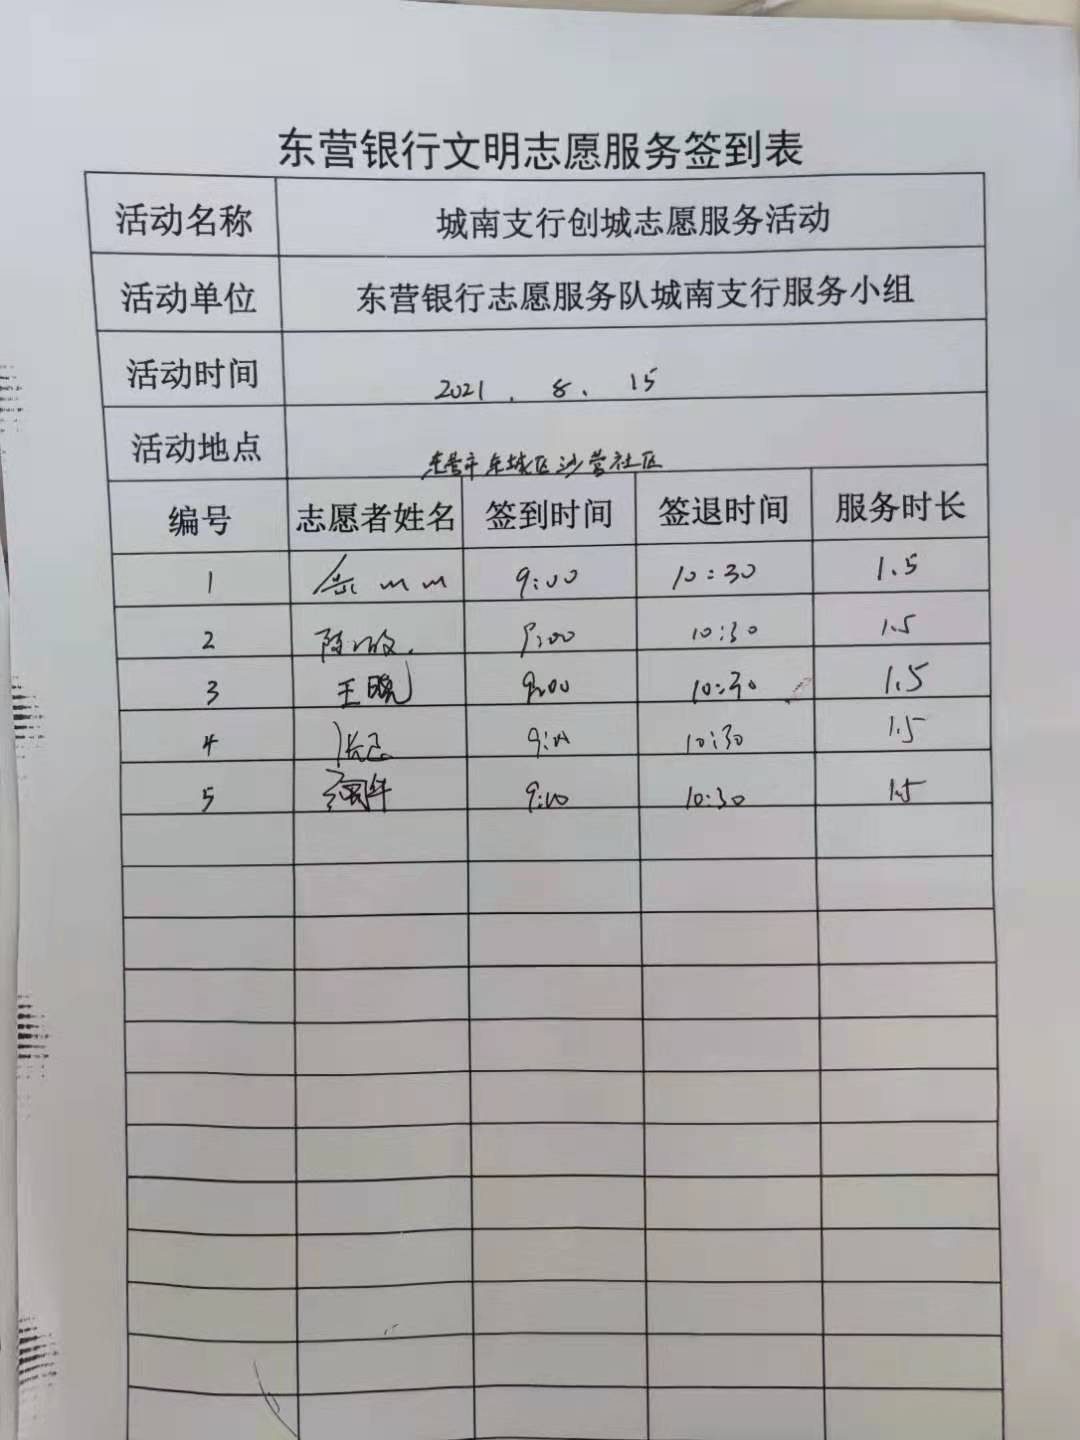 东营银行文明志愿服务签到表
活动名称 城南支行创城志愿服务活动
活动单位 东营银行志愿服务队城南支行服务小组
活动时间 2021.8.15
活动地点 东营市东城区沙营社区
编号 志愿者姓名 签到时间 签退时间 服务时长
1 9:00 10:30 1.5
2 9:00 10:30 1.5
3 王晓 9:00 10:30 1.5
4 9:00 10:30 1.5
5 9:00 10:30 1.5